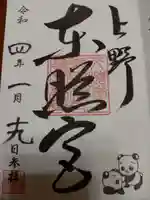 上野
東照宮
令和
四年
一月
十九日奉拝